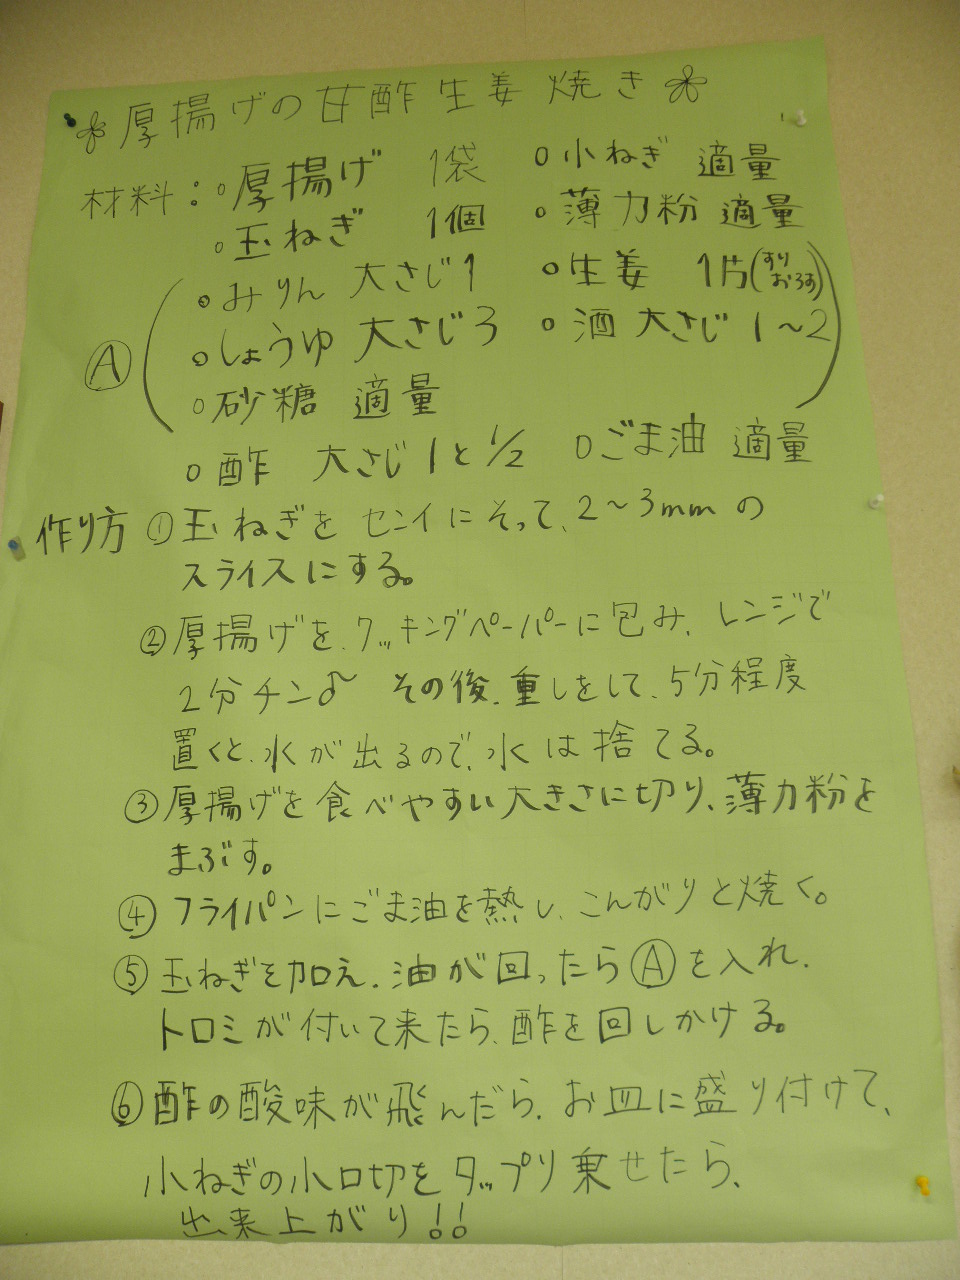 厚揚げの甘酢生姜焼き
材料:○厚揚げ 1袋 ○小ねぎ 適量
○玉ねぎ 1個 ○薄力粉 適量
Ⓐ(○みりん 大さじ1 ○生姜 1片(すりおろす)
○しょうゆ 大さじ3 ○酒 大さじ1〜2
○砂糖 適量)
○酢 大さじ1と1/2 ○ごま油 適量
作り方 ①玉ねぎをセンイにそって、2〜3mmの
スライスにする。
②厚揚げを、クッキングペーパーに包み、レンジで
2分チン♪ その後、重しをして、5分程度
置くと、水が出るので、水は捨てる。
③厚揚げを食べやすい大きさに切り、薄力粉を
まぶす。
④フライパンにごま油を熱し、こんがりと焼く。
⑤玉ねぎを加え、油が回ったらⒶを入れ、
トロミが付いて来たら、酢を回しかける。
⑥酢の酸味が飛んだら、お皿に盛り付けて、
小ねぎの小口切をタップリ乗せたら、
出来上がり!!